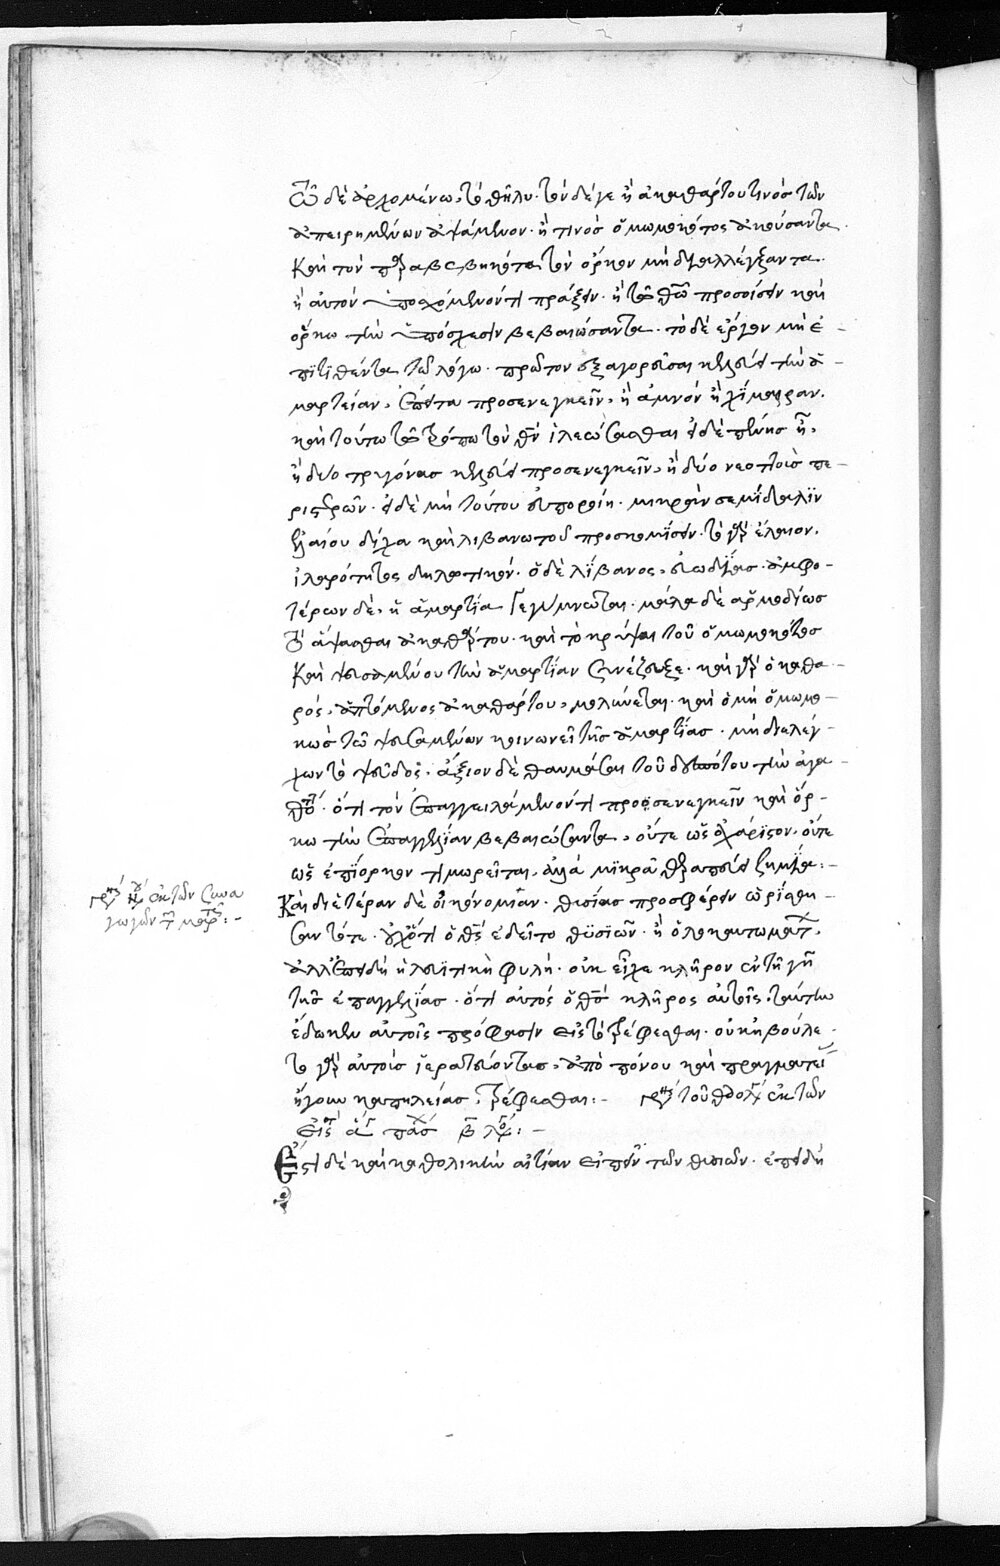 τῶ δὲ ἀρχομένω, τὸ θῆλυ· τὸν δέ γε ἢ ἀκαθάρτου τινὸς τῶν
ἀπειρημένων ἁψάμενον· ἤ τινος ὀμωμοκότος ἀκούσαντα
καὶ τὸν παραβεβηκότα τὸν ὅρκον μὴ διελλέγξαντα·
ἢ αὐτὸν ὑποσχόμενόν τι πράξειν· ἢ τῶ θῶ προσοίσειν καὶ
ὅρκω τὴν ὑπόσχεσιν βεβαιώσαντα· τὸ δὲ ἔργον μὴ ἐ-
πιτιθέντα τῶ λόγω· πρῶτον ἐξαγορεῦσαι κελεύει τὴν ἁ-
μαρτείαν, ἔπειτα προσενεγκεῖν, ἢ ἀμνὸν ἢ χίμαιραν·
καὶ τούτω τῶ τρόπω τὸν θν ἱλεώσασθαι εἰ δὲ πένης ἦ,
ἢ δύο τρυγόνας κελεύει προσενεγκεῖν, ἢ δύο νεοττοὺς πε-
ριστερῶν· εἰ δὲ μὴ τούτου εὐποροίη· μικρὰν σεμίδαλιν
ἐλαίου δίχα καὶ λιβανωτοῦ προσκομίσειν· τὸ γὰρ ἔλαιον,
ἱλαρότητος δηλωτικόν· ὁ δὲ λίβανος, εὐωδίας· ἀμφο-
τέρων δὲ, ἡ ἁμαρτία γεγύμνωται· μάλα δὲ ἁρμοδίως
τὸ ἅψασθαι ἀκαθάρτου· καὶ τὸ κρύψαι τοῦ ὀμωμοκότος
καὶ ψευσαμένου τὴν ἁμαρτίαν συνέζευξε· καὶ γὰρ ὁ καθα-
ρὸς, ἁπτόμενος ἀκαθάρτου, μολύνεται· καὶ ὁ μὴ ὀμωμο-
κὼς τῶ ψευσαμένων κοινωνεῖ τῆς ἁμαρτίας· μὴ διελέγ-
χων τὸ ψεῦδος· ἄξιον δὲ θαυμάσαι τοῦ δεσπότου τὴν ἀγα-
θότ· ὅτι τὸν ἐπαγγειλάμενόν τι προσενεγκεῖν καὶ ὅρ-
κω τὴν ἐπαγγελίαν βεβαιώσαντα, οὔτε ὡς ἀχάριστον· οὔτε
ὡς ἐπίορκον τιμωρεῖται, ἀλλὰ μικρᾶ θεραπεύει ζημία:-
Καὶ δι' ἑτέραν δὲ οἰκονομίαν· θυσίας προσφέρειν ὡρίσθη-
σαν τότε· οὐχ ὅτι ὁ θς ἐδεῖτο θυσιῶν· ἢ ὁλοκαυτωμάτ,
ἀλλ' ἐπειδὴ ἡ λευιτικὴ φυλὴ· οὐκ εἶχε κλῆρον ἐν τῆ γῆ
τῆς ἐπαγγελίας· ὅτι αὐτὸς ὁ θς κλῆρος αὐτοῖς, ταύτην
ἔδωκεν αὐτοῖς πρόφασιν εἰς τὸ τρέφεσθαι· οὐκ ἠβούλε-
το γὰρ αὐτοὺς ἱερατεύοντας, ἀπὸ πόνου καὶ πραγματεί
ἤγουν καπηλείας, τρέφεσθαι:- τοῦ θεολόγ ἐκ τῶν
ἐκ τῶν συνα
γωγῶν
Ἔστι δὲ καὶ καθολικὴν αἰτίαν εἰπεῖν τῶν θυσιῶν· ἐπειδὴ